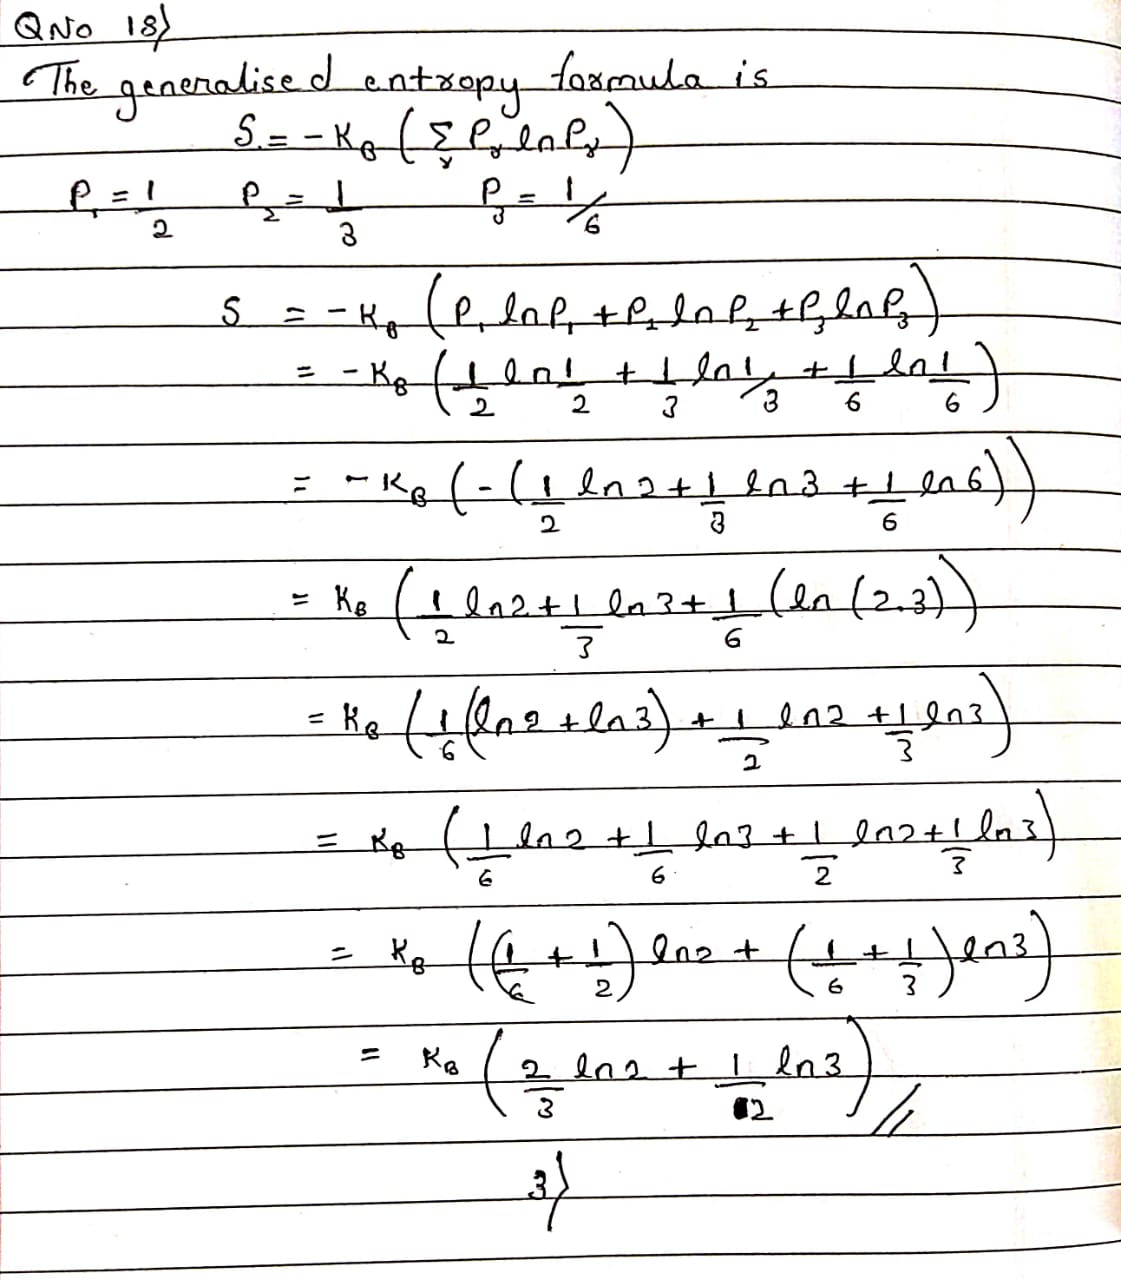 QNo 18)
The generalised entropy formula is
S = - K_B ( Σ_r P_r ln P_r )
P_1 = 1/2 P_2 = 1/3 P_3 = 1/6
S = - K_B ( P_1 ln P_1 + P_2 ln P_2 + P_3 ln P_3 )
= - K_B ( 1/2 ln 1/2 + 1/3 ln 1/3 + 1/6 ln 1/6 )
= - K_B ( - ( 1/2 ln 2 + 1/3 ln 3 + 1/6 ln 6 ) )
= K_B ( 1/2 ln 2 + 1/3 ln 3 + 1/6 ( ln (2.3) )
= K_B ( 1/6 ( ln 2 + ln 3 ) + 1/2 ln 2 + 1/3 ln 3 )
= K_B ( 1/6 ln 2 + 1/6 ln 3 + 1/2 ln 2 + 1/3 ln 3 )
= K_B ( ( 1/6 + 1/2 ) ln 2 + ( 1/6 + 1/3 ) ln 3 )
= K_B ( 2/3 ln 2 + 1/2 ln 3 ) //
3)